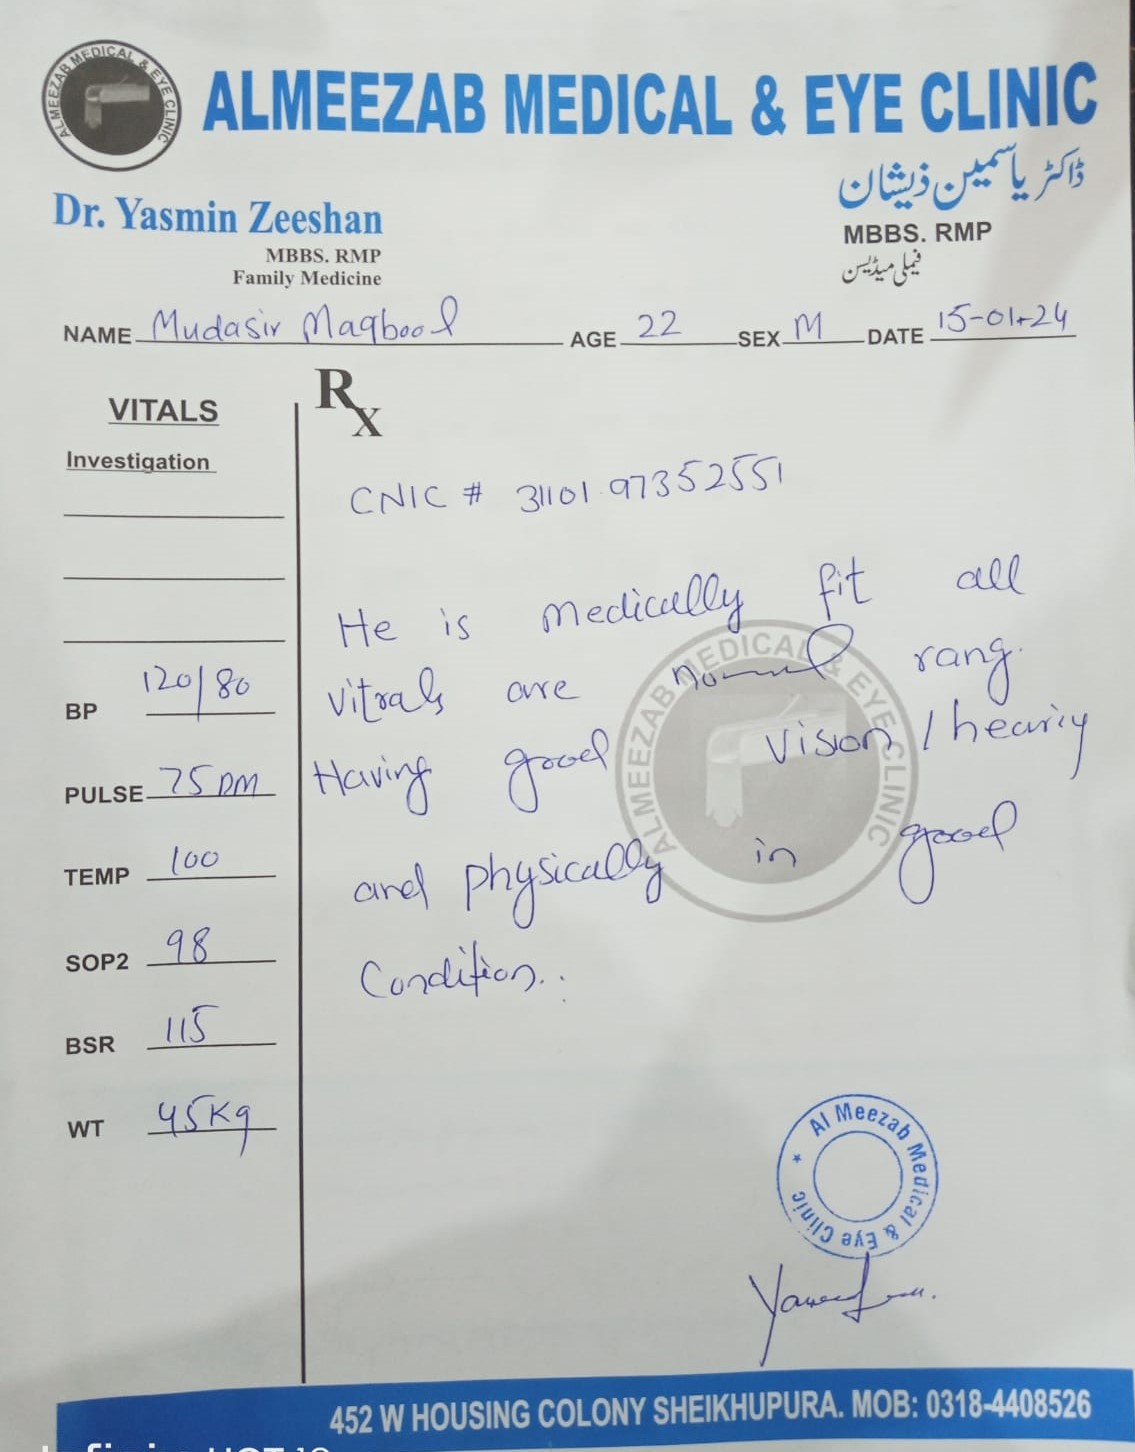 ALMEEZAB MEDICAL & EYE CLINIC
ALMEEZAB MEDICAL & EYE CLINIC
ڈاکٹر یاسمین ذیشان
Dr. Yasmin Zeeshan
MBBS. RMP
MBBS. RMP
Family Medicine
فیملی میڈیسن
NAME Mudasir Maqbool AGE 22 SEX M DATE 15-01-24
VITALS
Investigation
BP 120/80
PULSE 75 pm
TEMP 100
SOP2 98
BSR 115
WT 45Kg
Rx
CNIC # 31101 97352551
He is medically fit all
vitrals are normal rang.
Having good vision / heariy
and physically in good
Condition..
ALMEEZAB MEDICAL & EYE CLINIC
Al Meezab Medical & Eye Clinic
452 W HOUSING COLONY SHEIKHUPURA. MOB: 0318-4408526